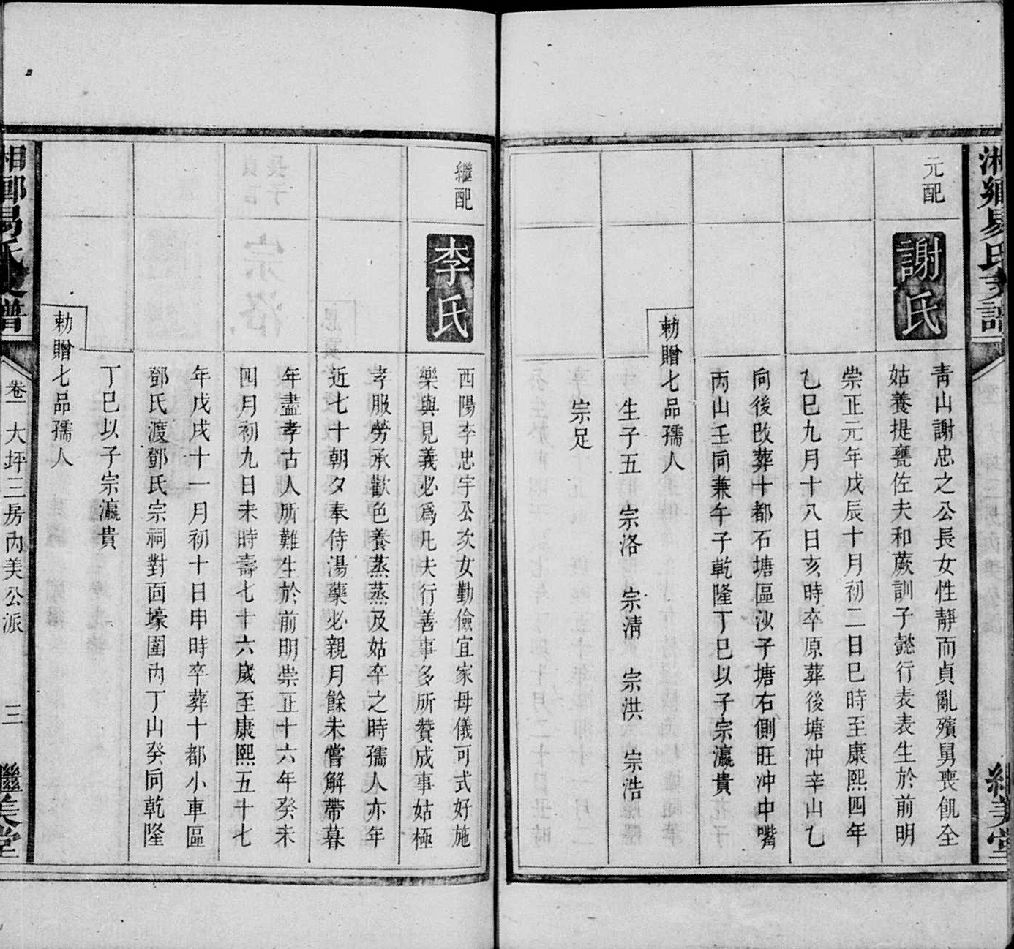 湘鄉易氏支譜
繼美堂
元配
謝氏
青山謝忠之公長女性靜而貞亂殯舅喪飢全
姑養提甕佐夫和蕨訓子懿行表表生於前明
崇正元年戊辰十月初二日巳時至康熙四年
乙巳九月十八日亥時卒原葬後塘冲辛山乙
向後改葬十都石塘區沙子塘右側旺冲中嘴
丙山壬向兼午子乾隆丁巳以子宗瀛貴
勅贈七品孺人
生子五 宗洛 宗清 宗洪 宗浩
宗足
繼配
李氏
西陽李忠宇公次女勤儉宜家母儀可式好施
樂與見義必爲凡夫行善事多所贊成事姑極
孝服勞承歡色養蒸蒸及姑卒之時孺人亦年
近七十朝夕奉侍湯藥必親月餘未嘗解帶暮
年盡孝古人所難生於前明崇正十六年癸未
四月初九日未時壽七十六歲至康熙五十七
年戊戌十一月初十日申時卒葬十都小車區
鄧氏渡鄧氏宗祠對面壕圍內丁山癸向乾隆
丁巳以子宗瀛貴
勅贈七品孺人
湘鄉易氏支譜
卷一 大坪三房內美公派
三
繼美堂